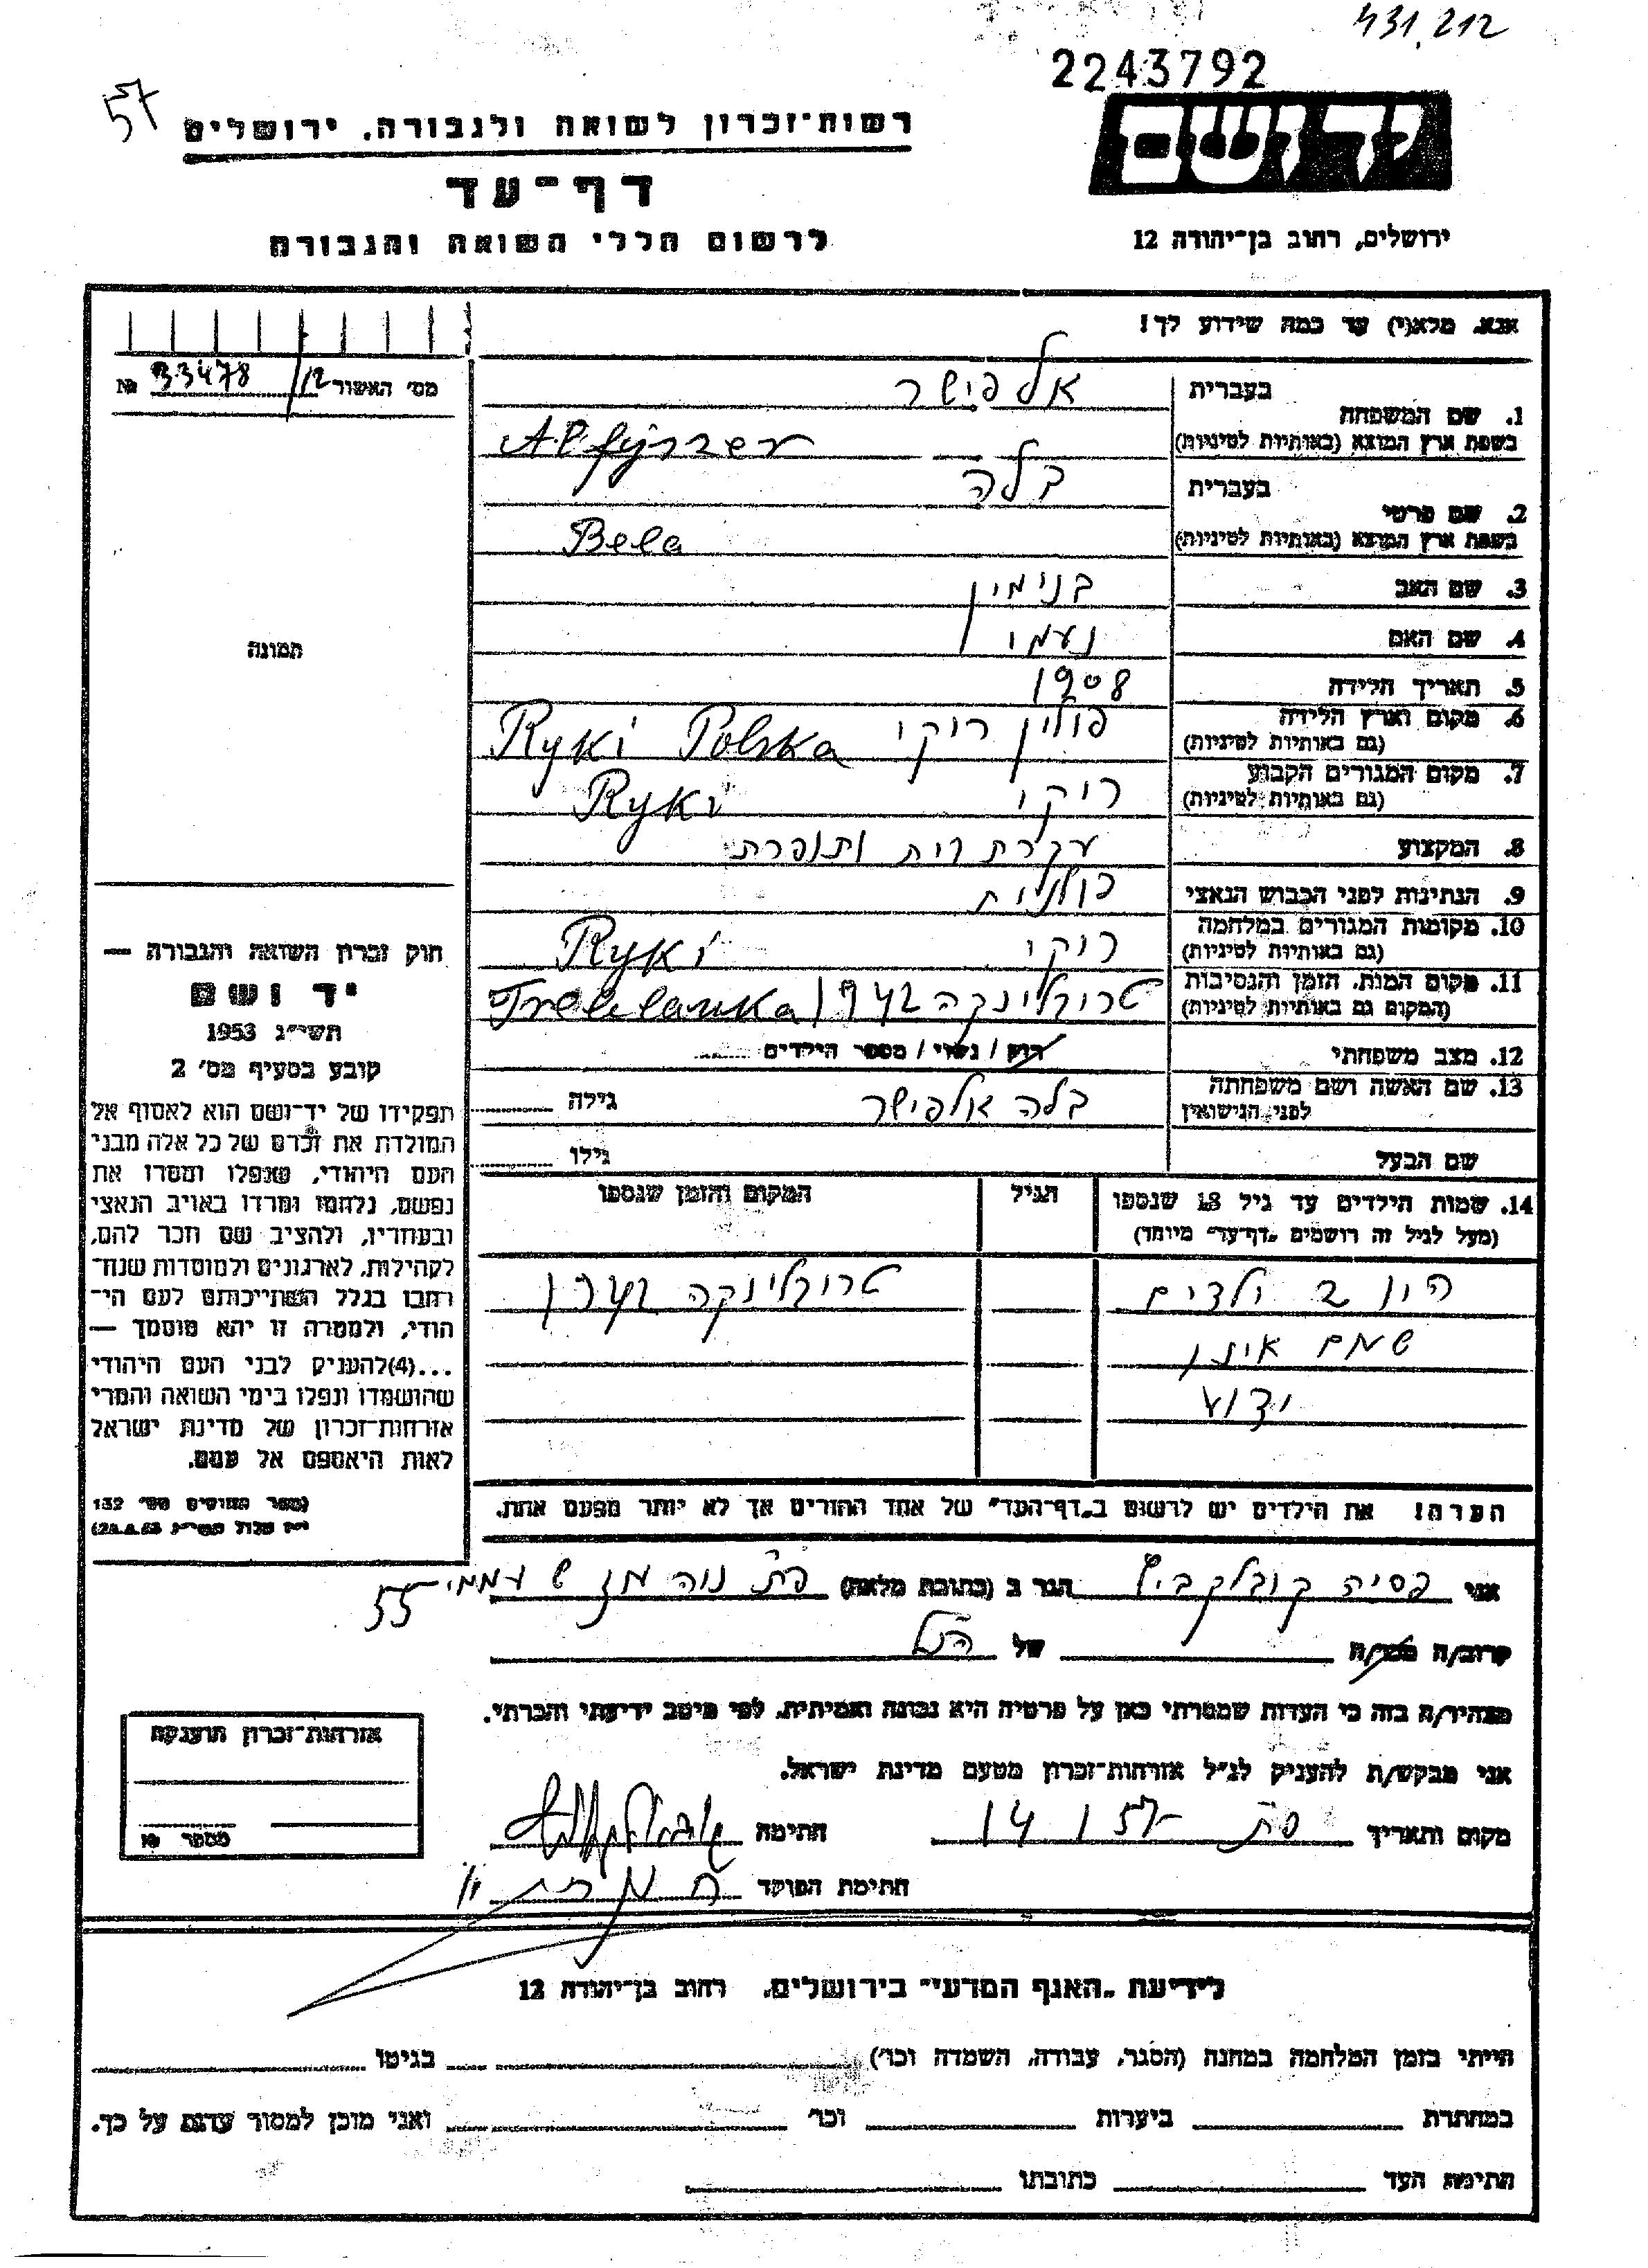 431.212
2243792
57
רשות-זכרון לשואה ולגבורה. ירושלים
דף-עד
לרשום חללי השואה והגבורה
ידושם
ירושלים, רחוב בן-יהודה 12
אנא, מלא(י) עד כמה שידוע לך!
מס' האשור 12/ 33478 №
1. שם המשפחה
בעברית אלפישר
בשפת ארץ המוצא (באותיות לטיניות)
2. שם פרטי
בעברית בלה
בשפת ארץ המוצא (באותיות לטיניות) Bela
3. שם האב בנימין
4. שם האם נעמי
5. תאריך הלידה 1908
6. מקום וארץ הלידה פולין ריקי Ryki Polska
(גם באותיות לטיניות)
7. מקום המגורים הקבוע ריקי Ryki
(גם באותיות לטיניות)
8. המקצוע עקרת בית ותופרת
9. הנתינות לפני הכבוש הנאצי פולנית
10. מקומות המגורים במלחמה ריקי Ryki
(גם באותיות לטיניות)
11. מקום המות, הזמן והנסיבות טרבלינקה 1942
(המקום גם באותיות לטיניות)
12. מצב משפחתי רווק / נשוי / מספר הילדים
13. שם האשה ושם משפחתה בלה אלפישר גילה
לפני הנישואין
שם הבעל גילו
14. שמות הילדים עד גיל 18 שנספו הגיל המקום והזמן שנספו
(מעל לגיל זה רושמים "דף-עד" מיוחד)
היו 2 ילדים טרבלינקה
שמם אינו
ידוע
הערה! את הילדים יש לרשום ב"דף-העד" של אחד ההורים אך לא יותר מפעם אחת.
תמונה
חוק זכרון השואה והגבורה —
יד ושם
תשי"ג 1953
קובע בסעיף מס' 2
תפקידו של יד-ושם הוא לאסוף אל
המולדת את זכרם של כל אלה מבני
העם היהודי, שנפלו ומסרו את
נפשם, נלחמו ומרדו באויב הנאצי
ובעוזריו, ולהציב שם וזכר להם,
לקהילות, לארגונים ולמוסדות שנח-
רבו בגלל השתייכותם לעם הי-
הודי, ולמטרה זו יהא מוסמך —
...(4)להעניק לבני העם היהודי
שהושמדו ונפלו בימי השואה והמרי
אזרחות-זכרון של מדינת ישראל
לאות היאספם אל עמם.
(ספר החוקים מס' 132
אני פסיה הגר ב (כתובת מלאה) פ"ת נוה עממי 55
קרוב/ה מכר/ה של הנ"ל
מצהיר/ה בזה כי העדות שמסרתי כאן על פרטיה היא נכונה ואמיתית, לפי מיטב ידיעתי והכרתי.
אני מבקש/ת להעניק לנ"ל אזרחות-זכרון מטעם מדינת ישראל.
מקום ותאריך פ"ת חתימה
חתימת הפוקד
אזרחות-זכרון הוענקה
מספר №
לידיעת "האגף המדעי" בירושלים, רחוב בן-יהודה 12
הייתי בזמן המלחמה במחנה (הסגר, עבודה, השמדה וכו') בגיטו
במחתרת ביערות וכו' ואני מוכן למסור עדות על כך.
חתימת העד כתובתו